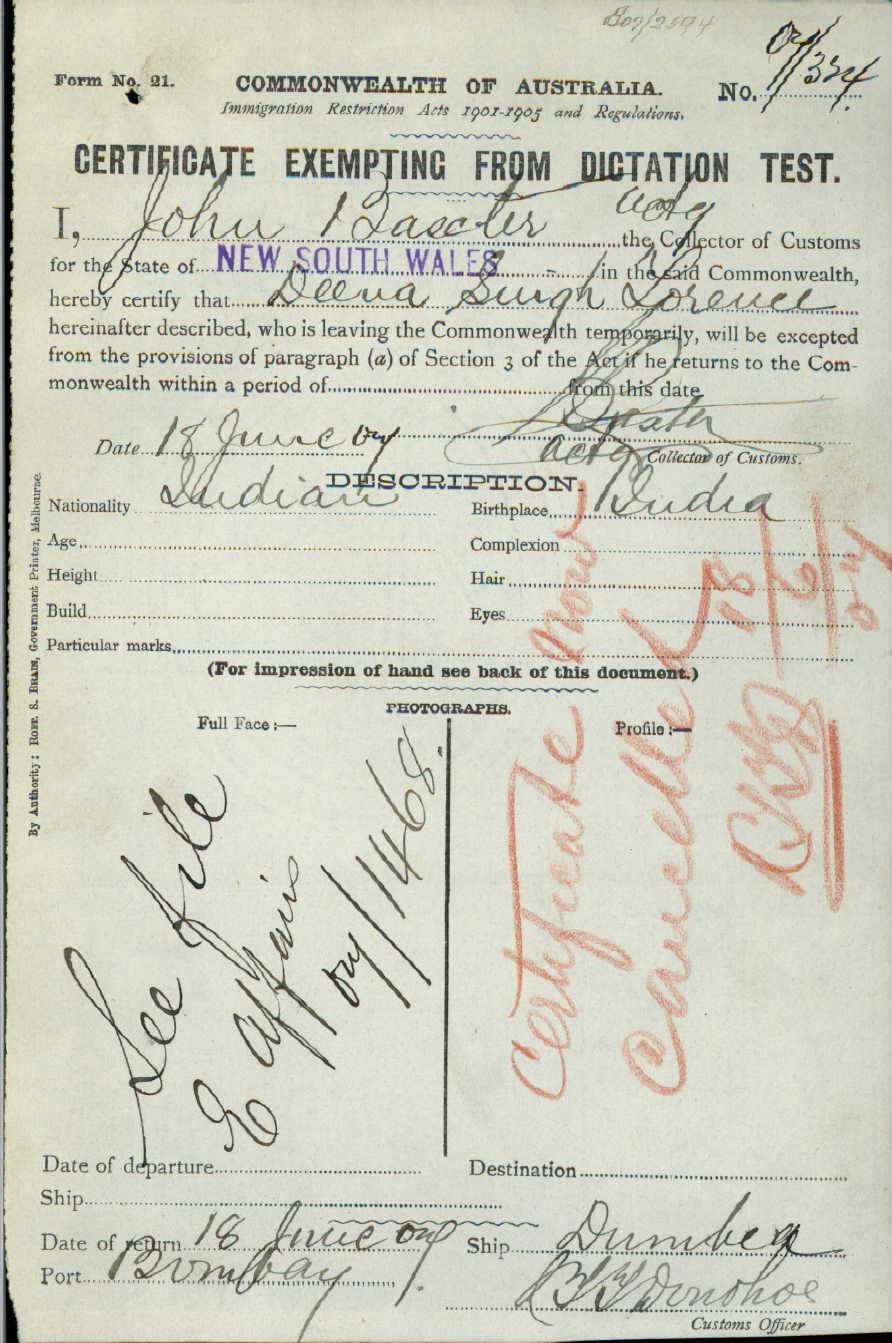 807/2594
Form No. 21. COMMONWEALTH OF AUSTRALIA. No. 07/334.
Immigration Restriction Acts 1901-1905 and Regulations.
CERTIFICATE EXEMPTING FROM DICTATION TEST.
I, John Baxter actg the Collector of Customs
for the State of NEW SOUTH WALES in the said Commonwealth,
hereby certify that Deena Singh Lorence
hereinafter described, who is leaving the Commonwealth temporarily, will be excepted
from the provisions of paragraph (a) of Section 3 of the Act if he returns to the Com-
monwealth within a period of from this date
Date 18 June 07 actg Collector of Customs.
DESCRIPTION.
Nationality Indian Birthplace India
Age Complexion
Height Hair
Build Eyes
Particular marks
(For impression of hand see back of this document.)
PHOTOGRAPHS.
Full Face :— Profile :—
See file
E affairs
07/1468.
Certificate now
Cancelled
18/6/07
Date of departure Destination
Ship
Date of return 18 June 07 Ship Dumbea
Port Bombay
Donohoe
Customs Officer
By Authority: ROBT. S. BRAIN, Government Printer, Melbourne.